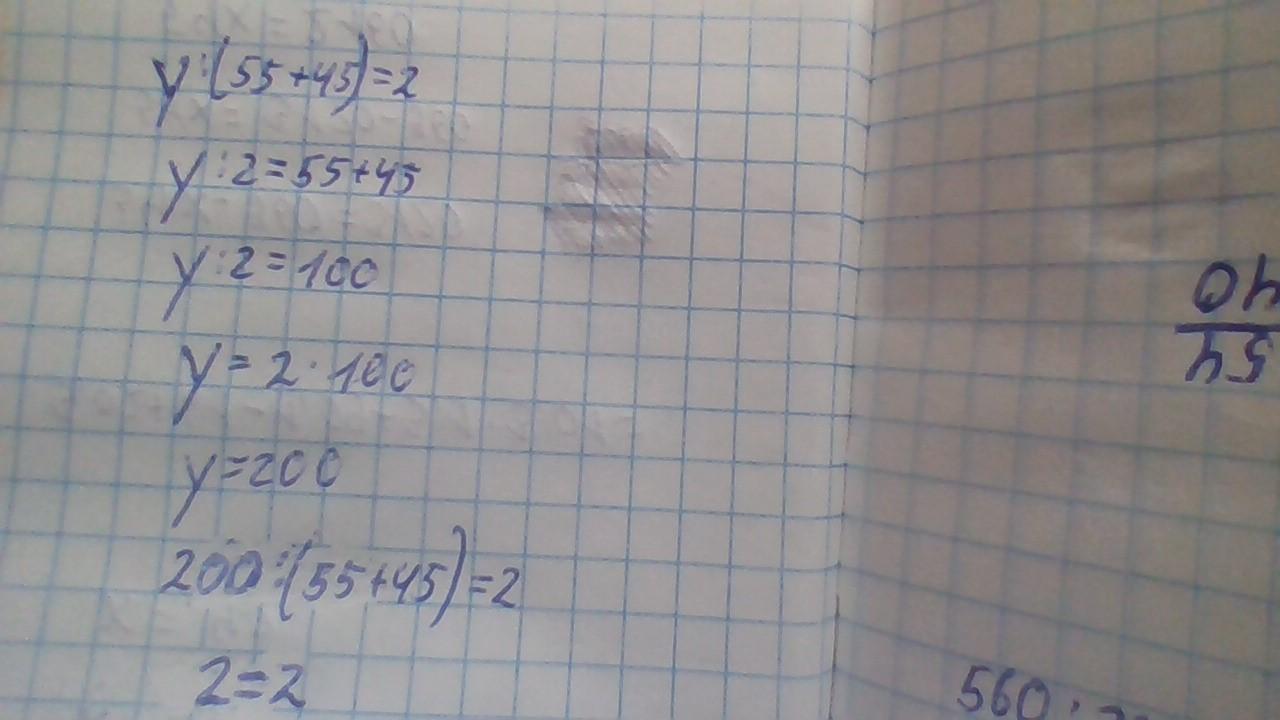 y:(55+45)=2
y:2=55+45
y:2=100
y=2·100
y=200
200:(55+45)=2
2=2
560: